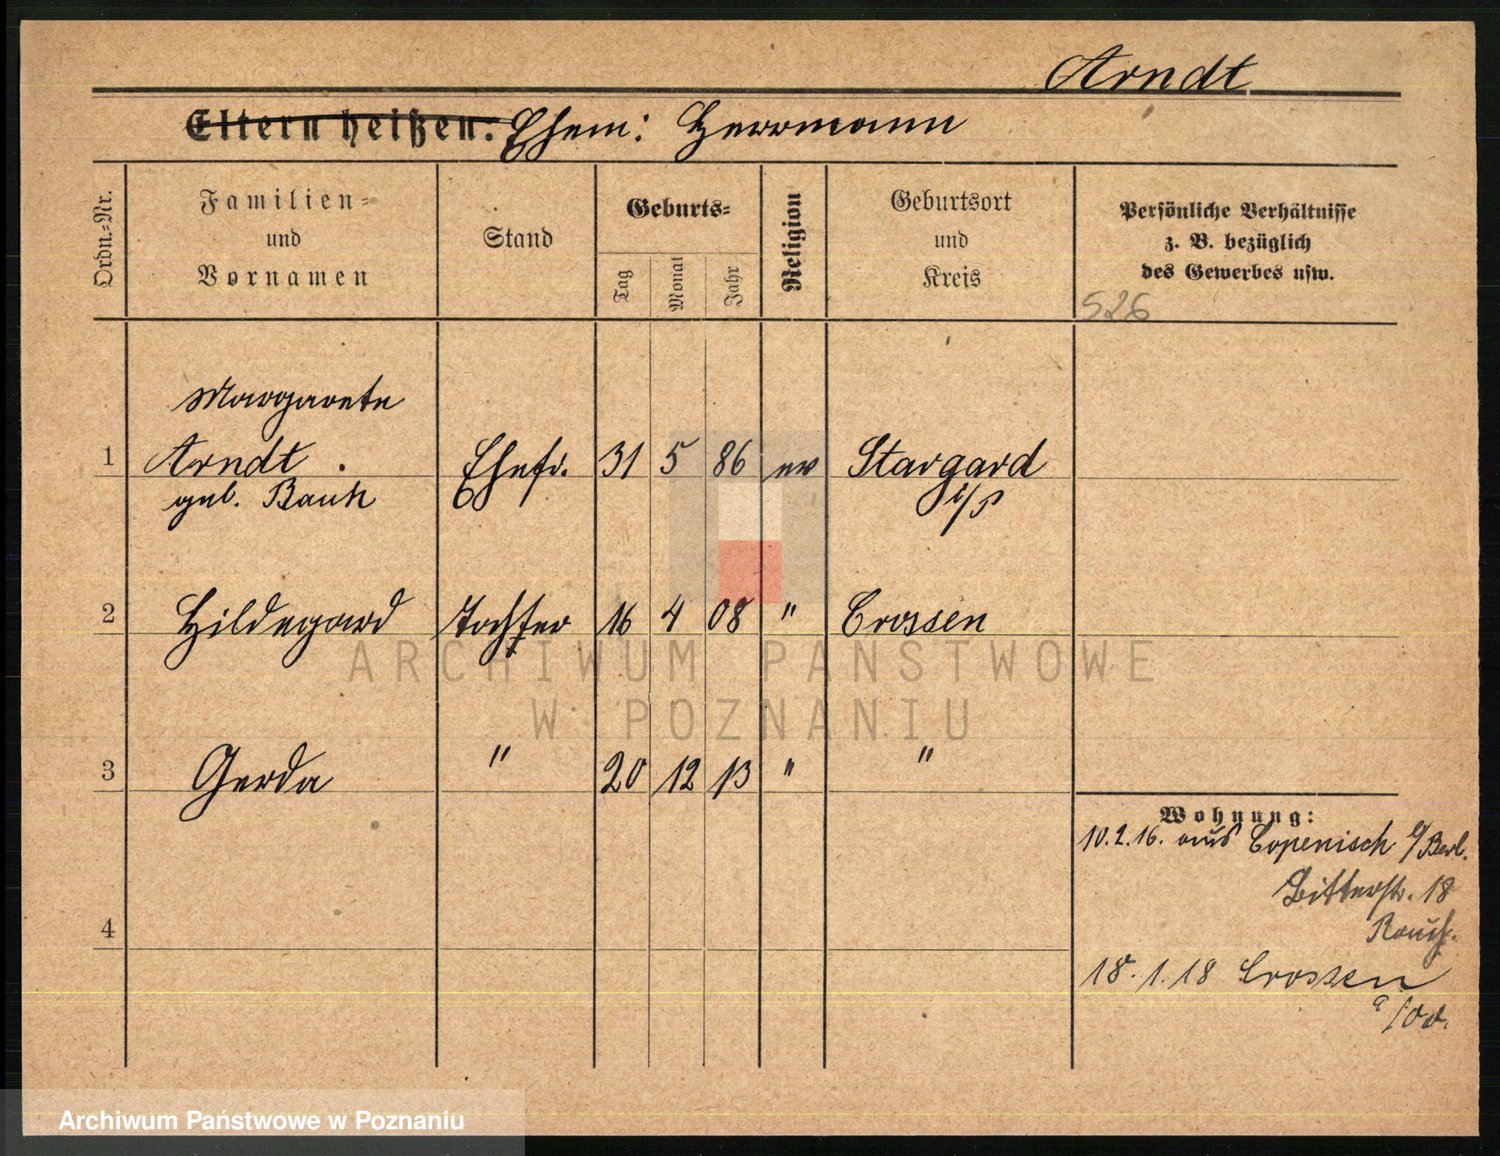 Arndt
Eltern heißen: Ehem: Herrmann
Ordn.-Nr.
Familien-
und
Vornamen
Stand
Geburts-
Tag
Monat
Jahr
Religion
Geburtsort
und
Kreis
Persönliche Verhältnisse
z. B. bezüglich
des Gewerbes usw.
526
Margarete
1 Arndt. Ehefr. 31 5 86 ev Stargard
geb. i/P
2 Hildegard Tochter 16 4 08 " Crossen
3 Gerda " 20 12 13 " "
Wohnung:
10.2.16. aus Copenisch b/Berl.
Bitterstr. 18
4
18.1.18 Crossen
a/Od.
ARCHIWUM PAŃSTWOWE
W POZNANIU
Archiwum Państwowe w Poznaniu